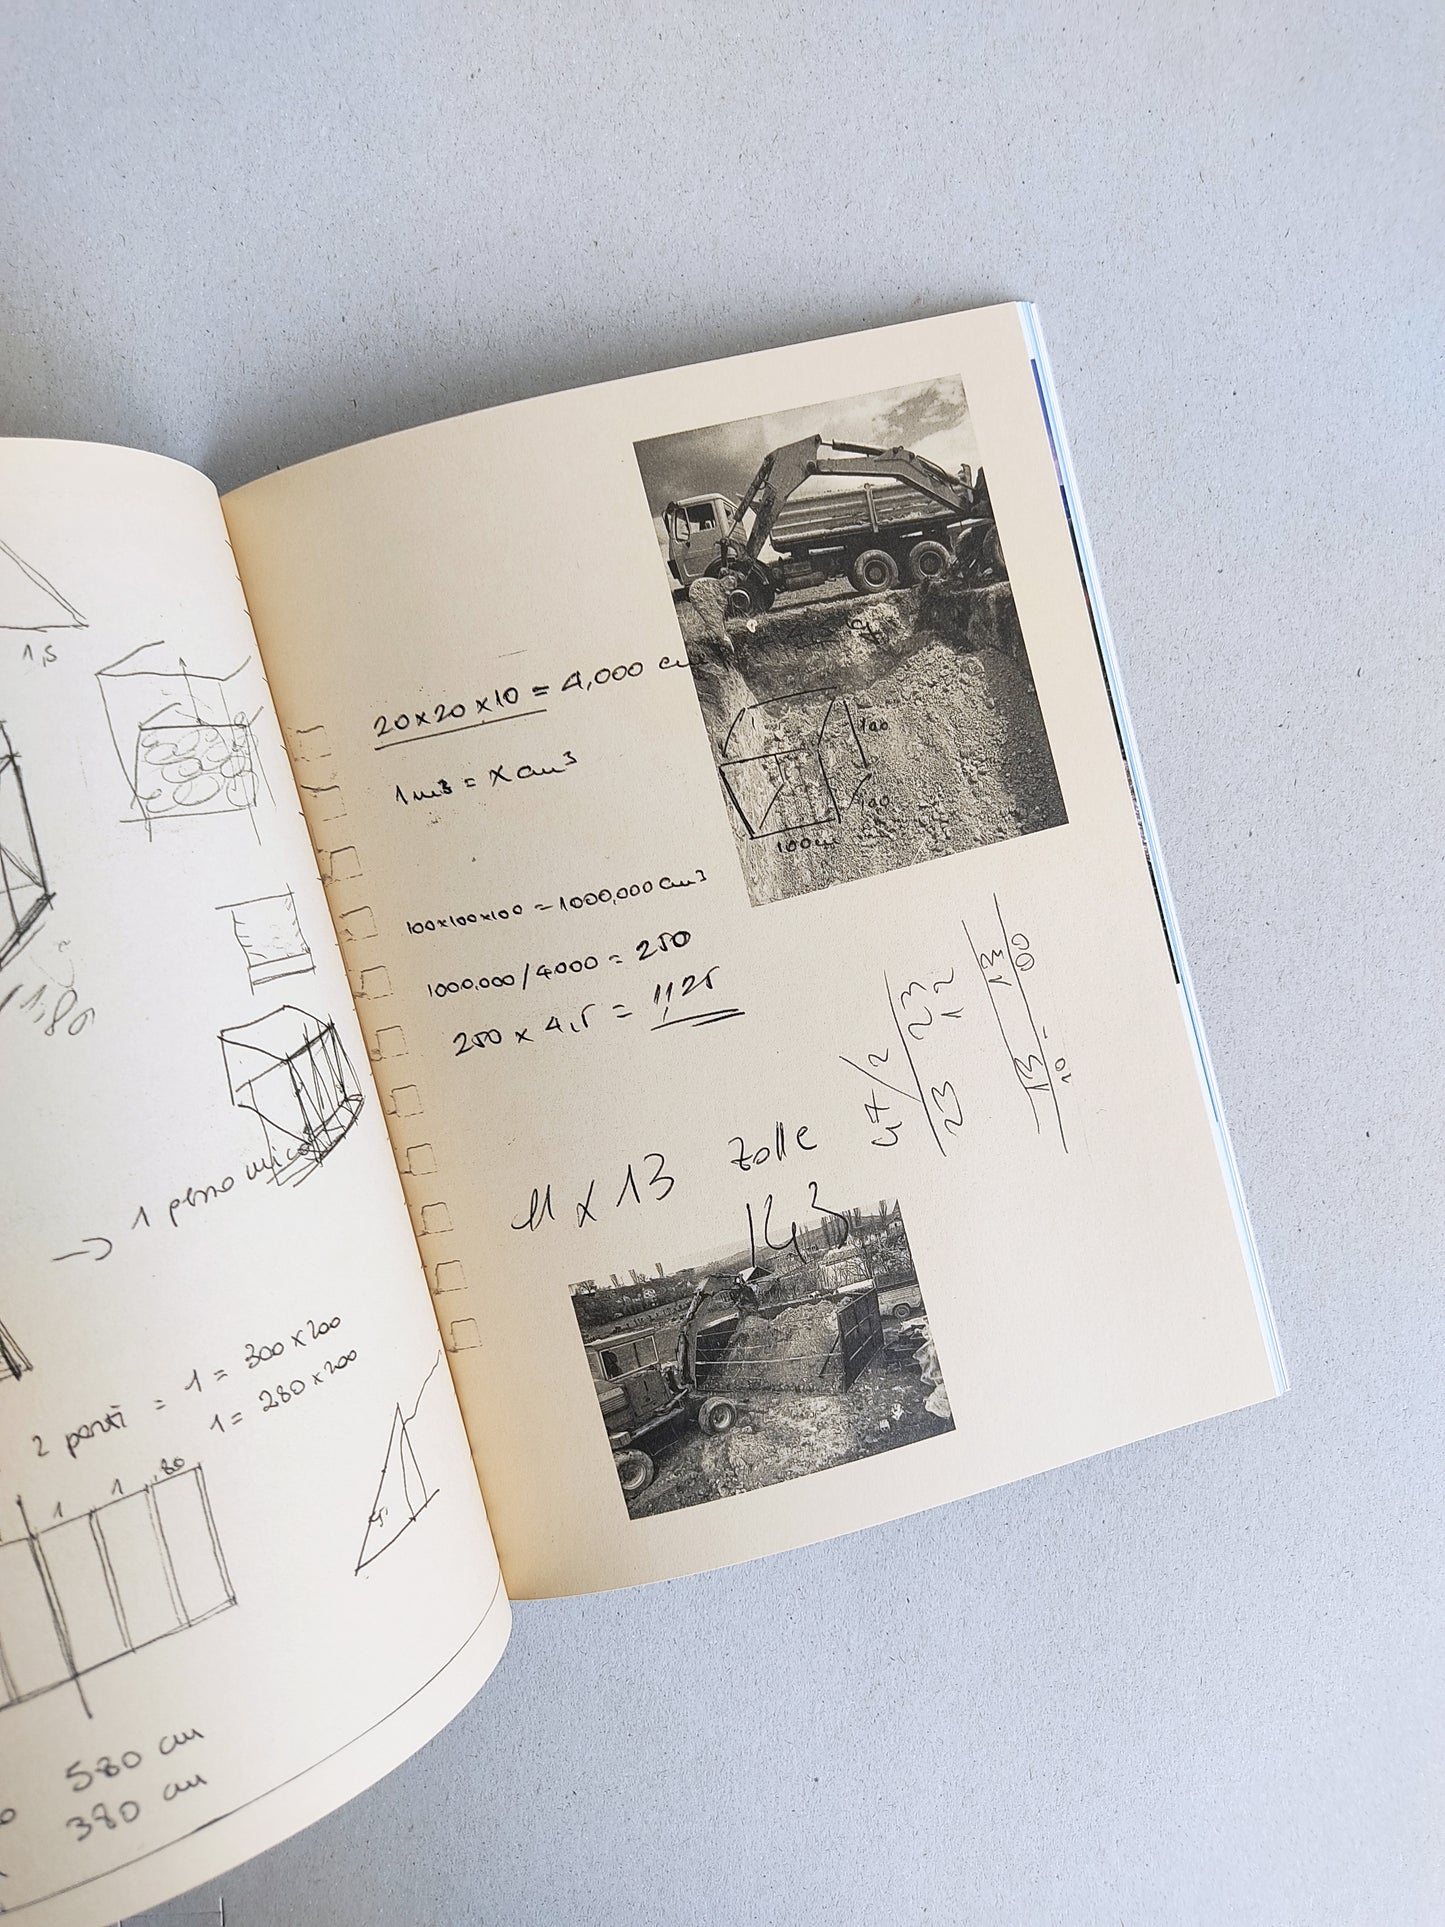 1,5
1,80
→ 1
2 pereti = 1 = 300 x 200
1 = 280 x 200
1 1 80
580 cm
380 cm
20x20x10 = 4,000
1m³ = x cm³
100
100
100cm
100x100x100 = 1000,000 cm³
1000.000/4000 = 250
250 x 4,5 = 1125
11 x 13 Zolle
143
47/2
23
23
12
13
13
10